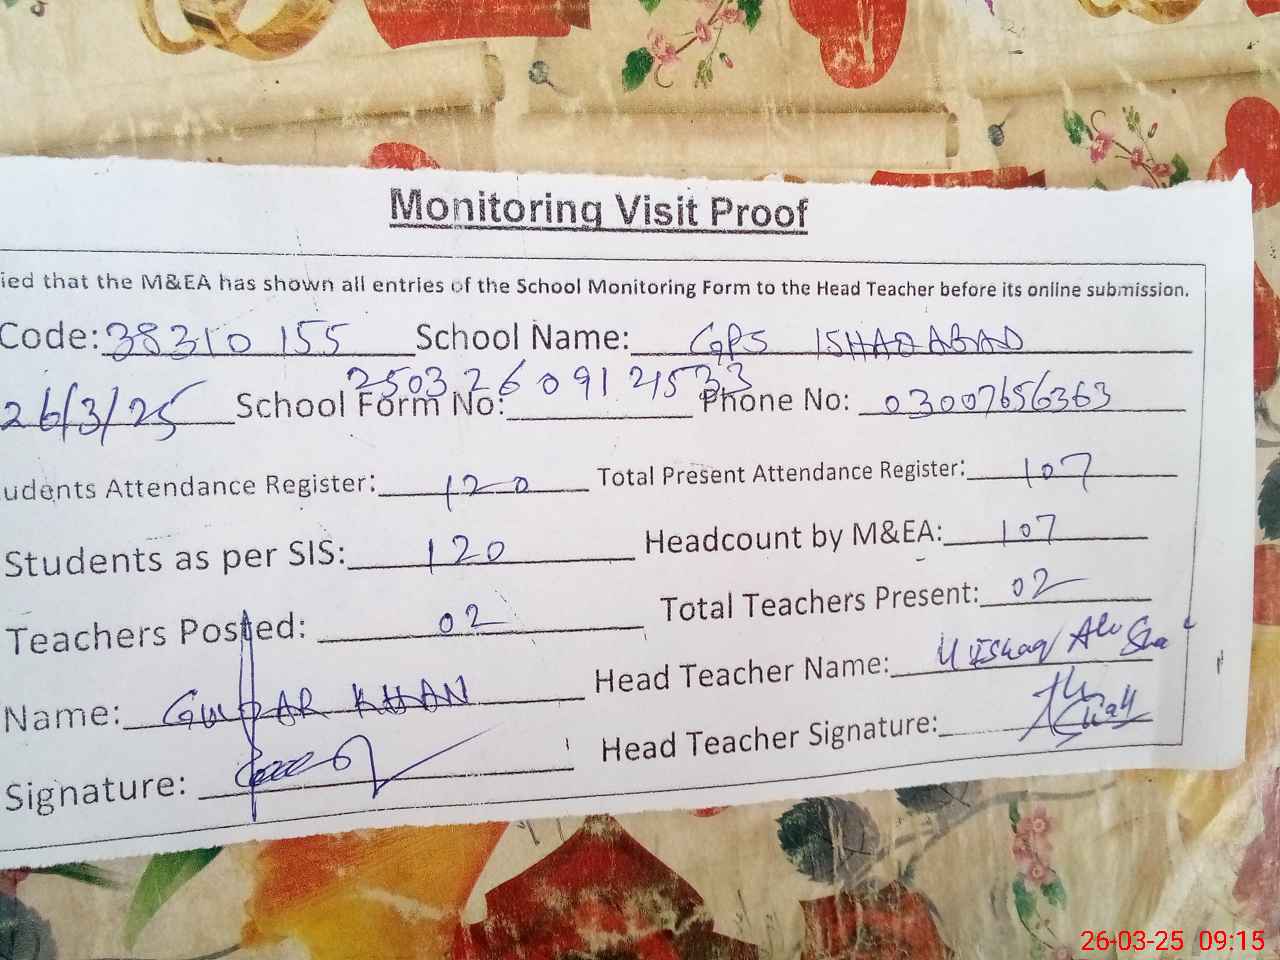 Monitoring Visit Proof
ied that the M&EA has shown all entries of the School Monitoring Form to the Head Teacher before its online submission.
Code: 38310155 School Name: GPS ISHAQABAD
26/3/25 School Form No: 2503260912533 Phone No: 03007656363
udents Attendance Register: 120 Total Present Attendance Register: 107
Students as per SIS: 120 Headcount by M&EA: 107
Teachers Posted: 02 Total Teachers Present: 02
Name: GULZAR KHAN Head Teacher Name: M Ishaq Ali Shah
Signature: Head Teacher Signature:
26-03-25 09:15